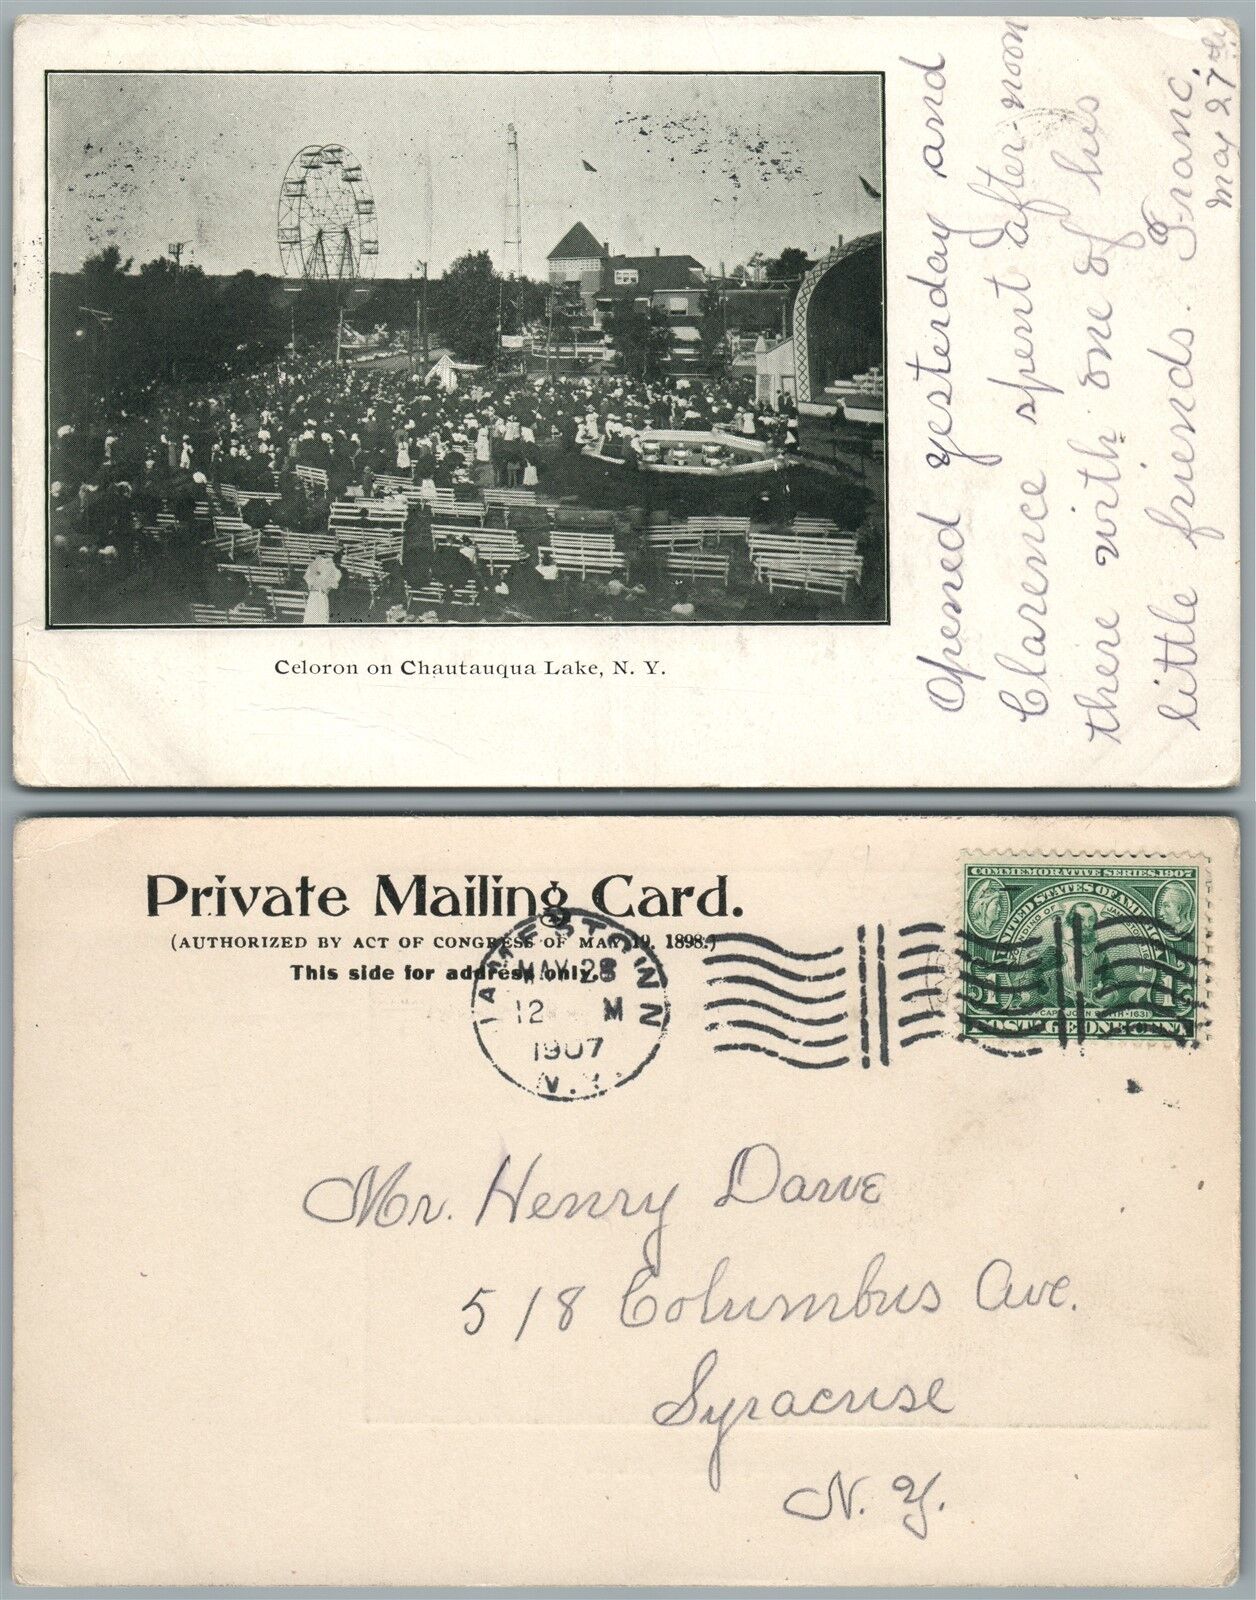 Celoron on Chautauqua Lake, N. Y.
Opened yesterday and
Clarence spent after-noon
there with one of his
little friends.
May 27th
Private Mailing Card.
(AUTHORIZED BY ACT OF CONGRESS OF MAY 19, 1898.)
This side for address only.
JAMESTOWN
MAY 28
12 M
1907
N.Y.
COMMEMORATIVE SERIES, 1907
UNITED STATES OF AMERICA
FOUNDING OF JAMESTOWN
CAPT. JOHN SMITH · 1631
POSTAGE ONE CENT
Mr. Henry
518 Columbus Ave.
Syracuse
N. Y.